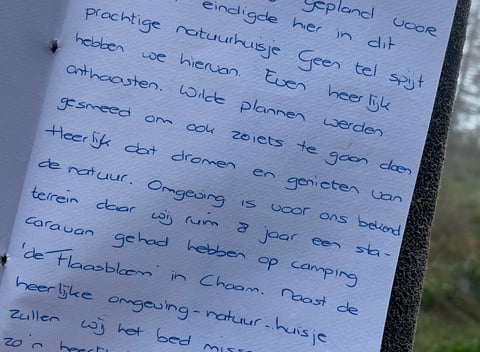 gepland voor
eindigde hier in dit
prachtige natuurhuisje Geen tel spijt
hebben we hiervan. Even heerlijk
onthaasten. Wilde plannen werden
gesmeed om ook zoiets te gaan doen
Heerlijk dat dromen en genieten van
de natuur. Omgeving is voor ons bekend
terrein daar wij ruim 8 jaar een sta-
caravan gehad hebben op camping
'de Flaasbloem' in Chaam. Naast de
heerlijke omgeving-natuur-huisje
zullen wij het bed
zo'n